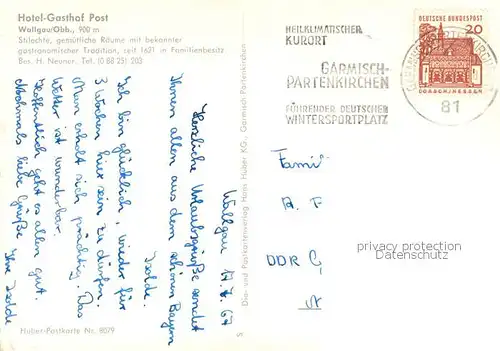 Hotel-Gasthof Post
Wallgau/Obb., 900 m
Stilechte, gemütliche Räume mit bekannter
gastronomischer Tradition, seit 1621 in Familienbesitz
Bes. H. Neuner, Tel. (0 88 25) 203
Wallgau 17.7.67
Herzliche Urlaubsgrüße sendet
Ihnen allen aus dem schönen Bayern
Isolde.
Ich bin glücklich, wieder für
3 Wochen hier sein zu dürfen.
Man erholt sich prächtig. Das
Wetter ist wunderbar.
Hoffentlich geht es allen gut.
Nochmals liebe Grüße
Ihre Isolde
Huber-Postkarte Nr. 8079
Dia- und Postkartenverlag Hans Huber KG., Garmisch-Partenkirchen
S
HEILKLIMATISCHER
KURORT
GARMISCH-
PARTENKIRCHEN
FÜHRENDER DEUTSCHER
WINTERSPORTPLATZ
GARMISCH-PARTENKIRCHEN
81
DEUTSCHE BUNDESPOST
20
LORSCH/HESSEN
Famil
A. F
DDR G
privacy protection
www.ansichtskartenversand.com